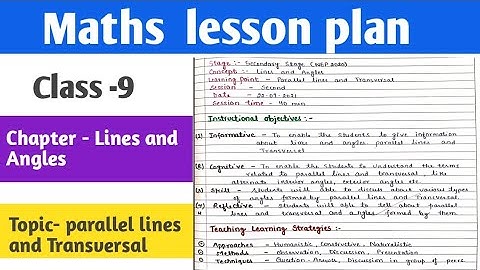 Maths lesson plan
Class -9
Chapter - Lines and
Angles
Topic- parallel lines
and Transversal
Stage :- Secondary Stage (NEP 2020)
Concept :- Lines and Angles
Learning Point - Parallel lines and Transversal
Session - Second
Date - 20-09-2021
Session time - 40 min
Instructional objectives :-
(1) Informative - To enable the students to give information
about lines and angles parallel lines and
Transversal
(2) Cognitive - To enable the students to understand the terms
related to parallel lines and transversal like
alternate interior angles, exterior angles etc.
(3) Skill - Students will able to discuss about various types
of angles formed by parallel lines and Transversal
Reflective - Students will able to tell about parallel
lines and transversal and angles formed by them
Teaching Learning Strategies :-
Approaches - Humanistic, Constructive, Naturalistic
Methods - Observation, Discussion, Presentation
Techniques - Question-Answer, Discussion in group of peers